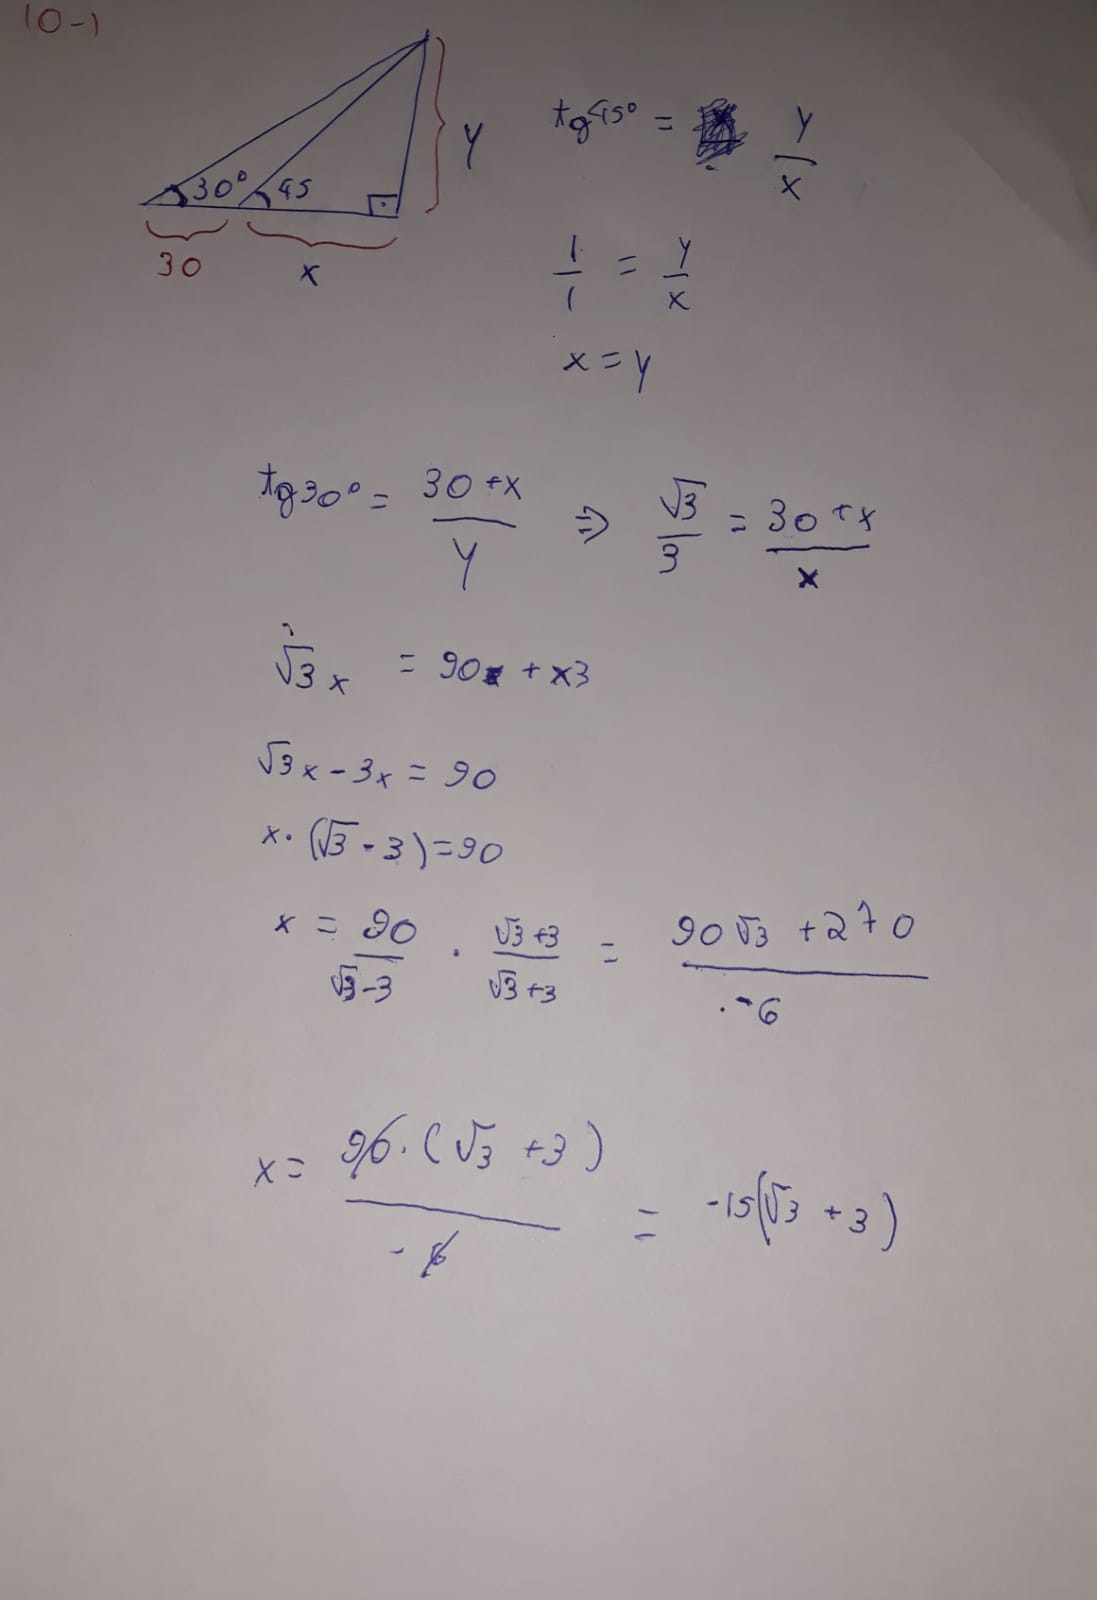 10-1
30° 45
y
30 x
tg45° = y/x
1/1 = y/x
x = y
tg30° = 30+x/y ⇒ √3/3 = 30+x/x
√3x = 90 + x3
√3x - 3x = 90
x·(√3 - 3) = 90
x = 90/√3-3 · √3+3/√3+3 = 90√3 + 270/-6
x = 90·(√3 + 3)/-6 = -15(√3 + 3)